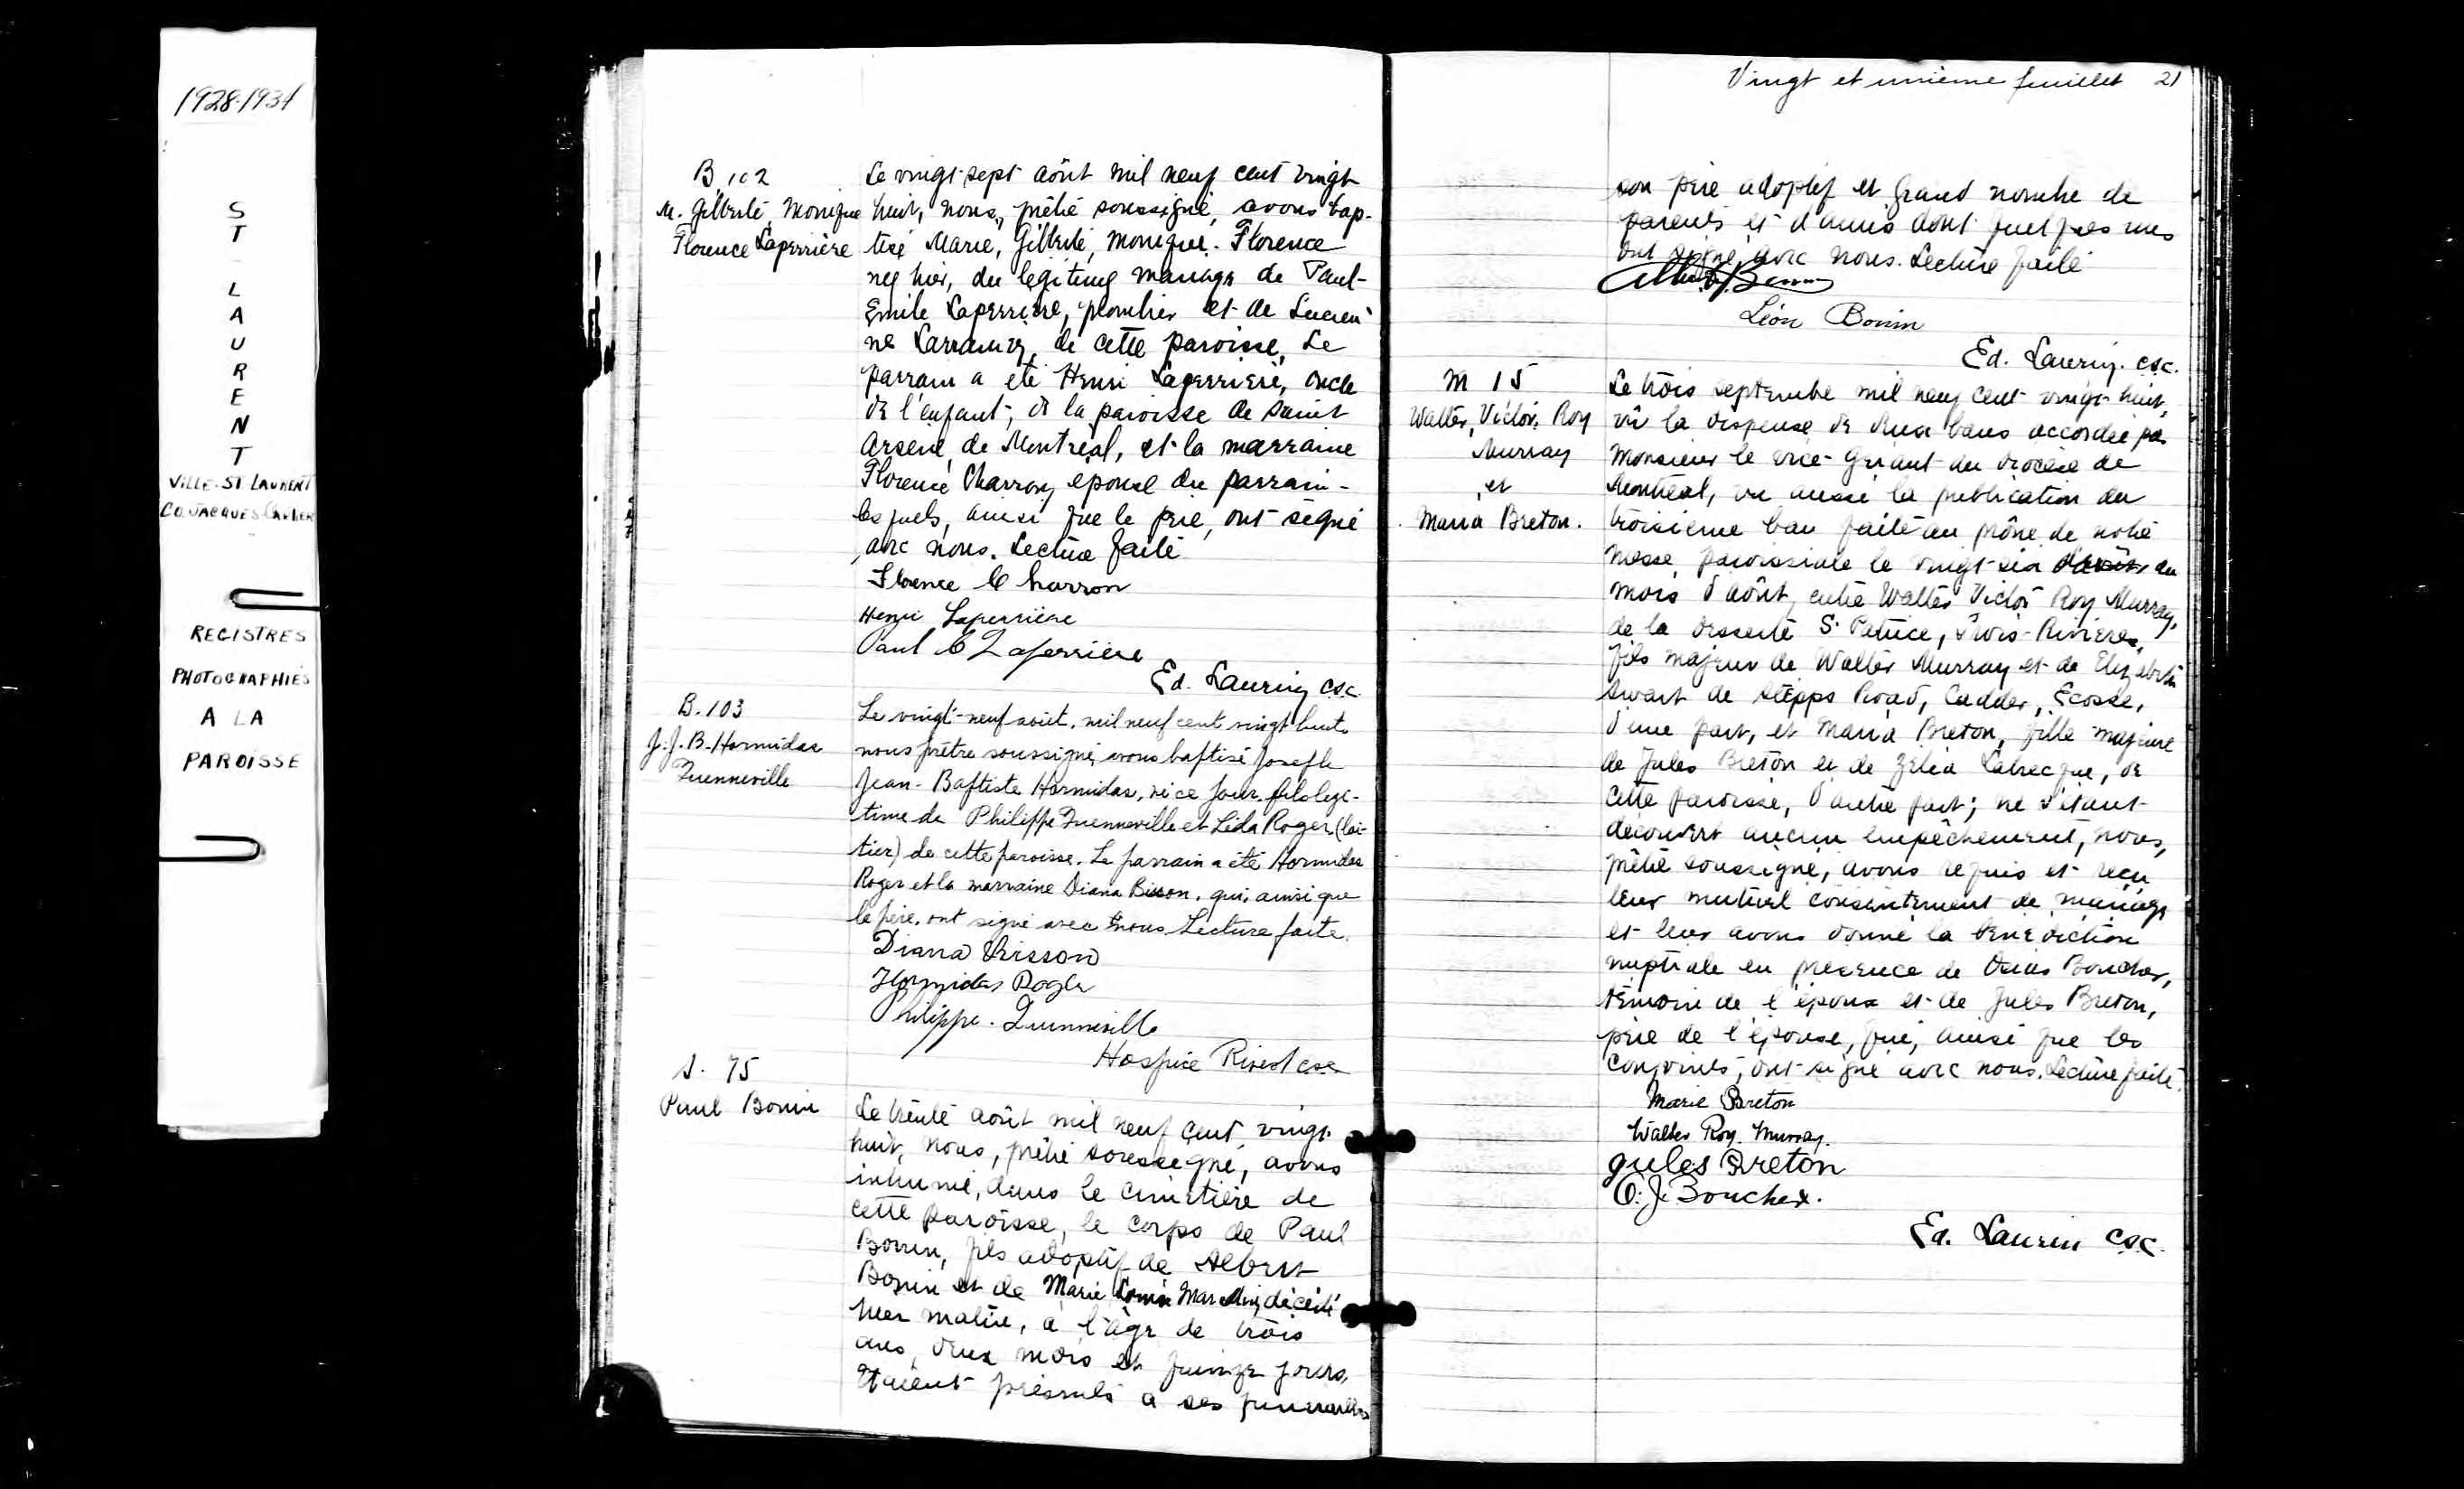 1928-1931
ST LAURENT
VILLE-ST LAURENT
CO. JACQUES CARTIER
REGISTRES
PHOTOGRAPHIÉS
A LA
PAROISSE
B. 102
M. Gilberte, Monique
Florence Laperrière
Le vingt-sept août mil neuf cent vingt
huit, nous, prêtre soussigné, avons bap-
tisé Marie, Gilberte, Monique. Florence
née hier, du légitime mariage de Paul-
Emile Laperrière, plombier et de Lucien-
ne de cette paroisse. Le
parrain a été Henri Laperrière, oncle
de l'enfant, de la paroisse de Saint
Arsène de Montréal, et la marraine
Florence Charron, épouse du parrain-
lesquels, ainsi que le père, ont signé
avec nous. Lecture faite
Florence C harron
Henri Laperrière
Paul E Laperrière
Ed. Laurin, csc.
B. 103
J. J. B. Hormidas
Quenneville
Le vingt-neuf août, mil neuf cent vingt huit
nous prêtre soussigné, avons baptisé Joseph
Jean-Baptiste Hormidas, né ce jour, fils légi-
time de Philippe Quenneville et Léda Roger (lai-
tier) de cette paroisse. Le parrain a été Hormidas
Roger et la marraine Diana Bisson, qui, ainsi que
le père, ont signé avec nous Lecture faite.
Diana Bisson
Hormidas Roger
Philippe. Quenneville
Hospice Rivest csc
S. 75
Paul Bonin
Le trente août mil neuf cent vingt
huit, nous, prêtre soussigné, avons
inhumé, dans le cimetière de
cette paroisse, le corps de Paul
Bonin, fils adoptif de Albert
Bonin et de Marie Louise décédé
hier matin, à l'âge de trois
ans, deux mois et quinze jours.
Etaient présents à ses funérailles
Vingt et unième feuillet 21
son père adoptif et grand nombre de
parents et d'amis dont quelques uns
ont signé avec nous. Lecture faite
Albert Bonin
Léon Bonin
Ed. Laurin. csc.
M 15
Walter, Victor, Roy
Murray
et
Maria Breton.
Le trois septembre mil neuf cent vingt-huit,
vû la dispense de deux bans accordée par
Monsieur le vice-gérant du diocèse de
Montréal, vu aussi la publication du
troisième ban faite au prône de notre
messe paroissiale le vingt-six d'août du
mois d'août, entre Walter Victor Roy Murray,
de la desserte St Patrice, Trois-Rivières,
fils majeur de Walter Murray et de Elizabeth
Swart de Stepps Road, Cadder, Ecosse,
d'une part, et Maria Breton, fille majeure
de Jules Breton et de Zélia Labrecque, de
cette paroisse, d'autre part; ne s'étant
découvert aucun empêchement, nous,
prêtre soussigné, avons requis et reçu
leur mutuel consentement de mariage
et leur avons donné la bénédiction
nuptiale en présence de Boucher,
témoin de l'époux et de Jules Breton,
père de l'épouse, qui, ainsi que les
conjoints, ont signé avec nous. Lecture faite.
Marie Breton
Walter Roy. Murray.
Jules Breton
O. J. Boucher.
Ed. Laurin csc.